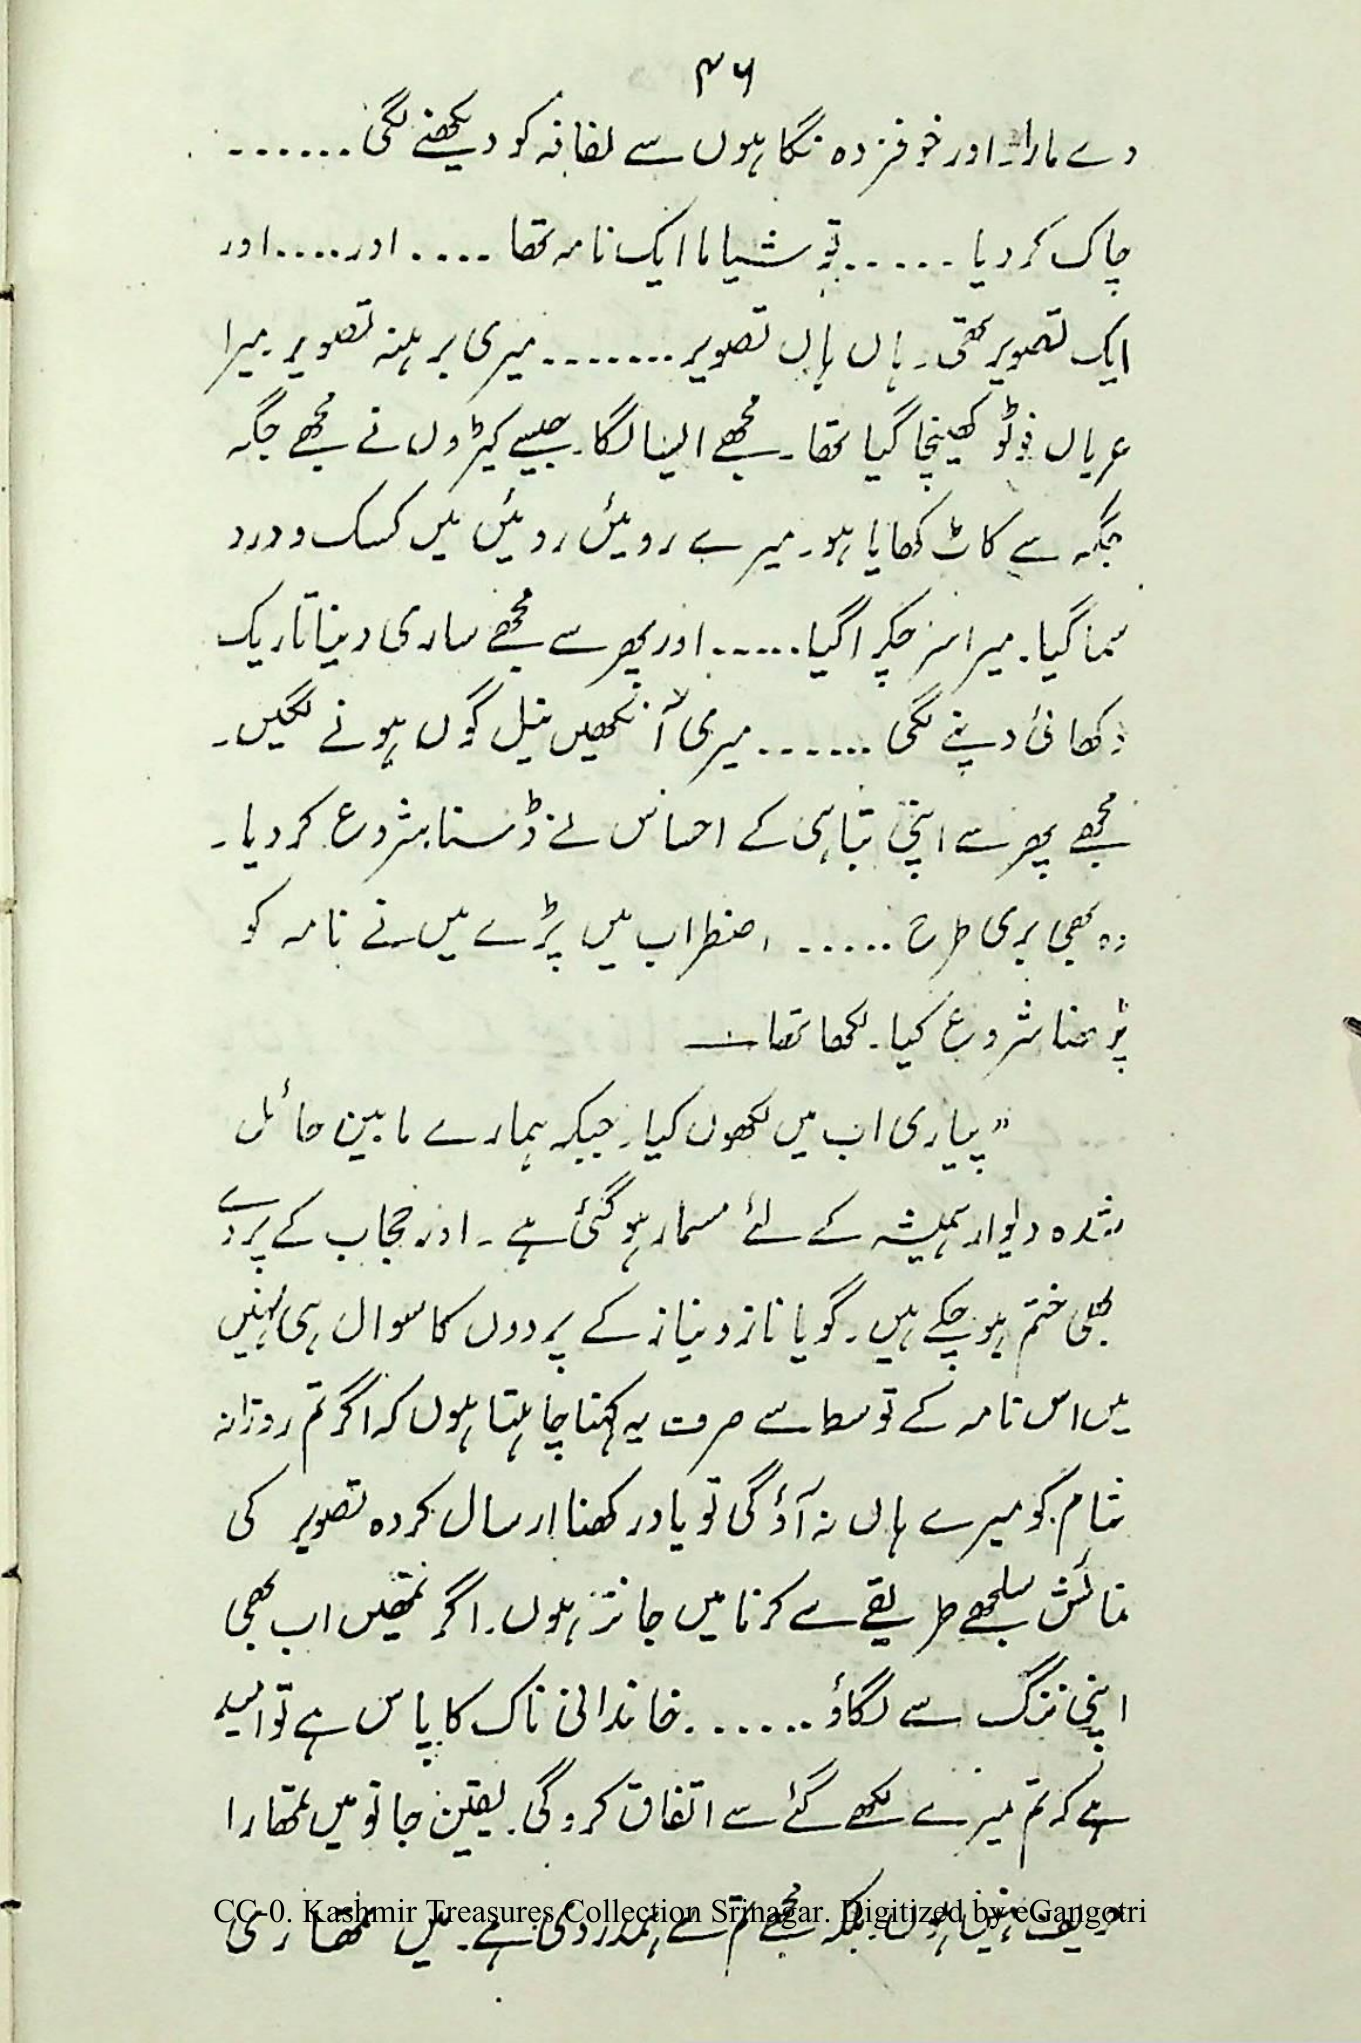 ۴۶
دے مارا۔ اور خوفزدہ نگاہوں سے لفافہ کو دیکھنے لگی ......
چاک کر دیا ..... تو شیاما ایک نامہ تھا .... اور .... اور
ایک تصویر تھی۔ ہاں ہاں تصویر ....... میری برہنہ تصویر۔ میرا
عریاں فوٹو کھینچا گیا تھا۔ مجھے ایسا لگا۔ جیسے کیڑوں نے مجھے جگہ
جگہ سے کاٹ کھایا ہو۔ میرے روئیں روئیں میں کسک و درد
سما گیا۔ میرا سر چکرا گیا ..... اور پھر سے مجھے ساری دنیا تاریک
دکھائی دینے لگی ...... میری آنکھیں نیل گوں ہونے لگیں۔
مجھے پھر سے اپنی تباہی کے احساس نے ڈسنا شروع کر دیا۔
وہ بھی بری طرح ..... اضطراب میں پڑے میں نے نامہ کو
پڑھنا شروع کیا۔ لکھا تھا۔
”پیاری اب میں لکھوں کیا۔ جبکہ ہمارے مابین حائل
شدہ دیوار ہمیشہ کے لئے مسمار ہو گئی ہے۔ اور حجاب کے پردے
بھی ختم ہو چکے ہیں۔ گویا ناز و نیاز کے پردوں کا سوال ہی نہیں
میں اس نامہ کے توسط سے صرف یہ کہنا چاہتا ہوں کہ اگر تم روزانہ
شام کو میرے ہاں نہ آؤ گی تو یاد رکھنا ارسال کردہ تصویر کی
نمائش سلجھے طریقے سے کرنا میں جانتا ہوں۔ اگر تمھیں اب بھی
اپنی ننگ سے لگاؤ ...... خاندانی ناک کا پاس ہے تو امید
ہے کہ تم میرے لکھے گئے سے اتفاق کرو گی۔ یقین جانو میں تمھارا
حریف نہیں ہوں۔ بلکہ مجھے تم سے ہمدردی ہے۔ میں تمھاری
CC-0. Kashmir Treasures Collection Srinagar. Digitized by eGangotri